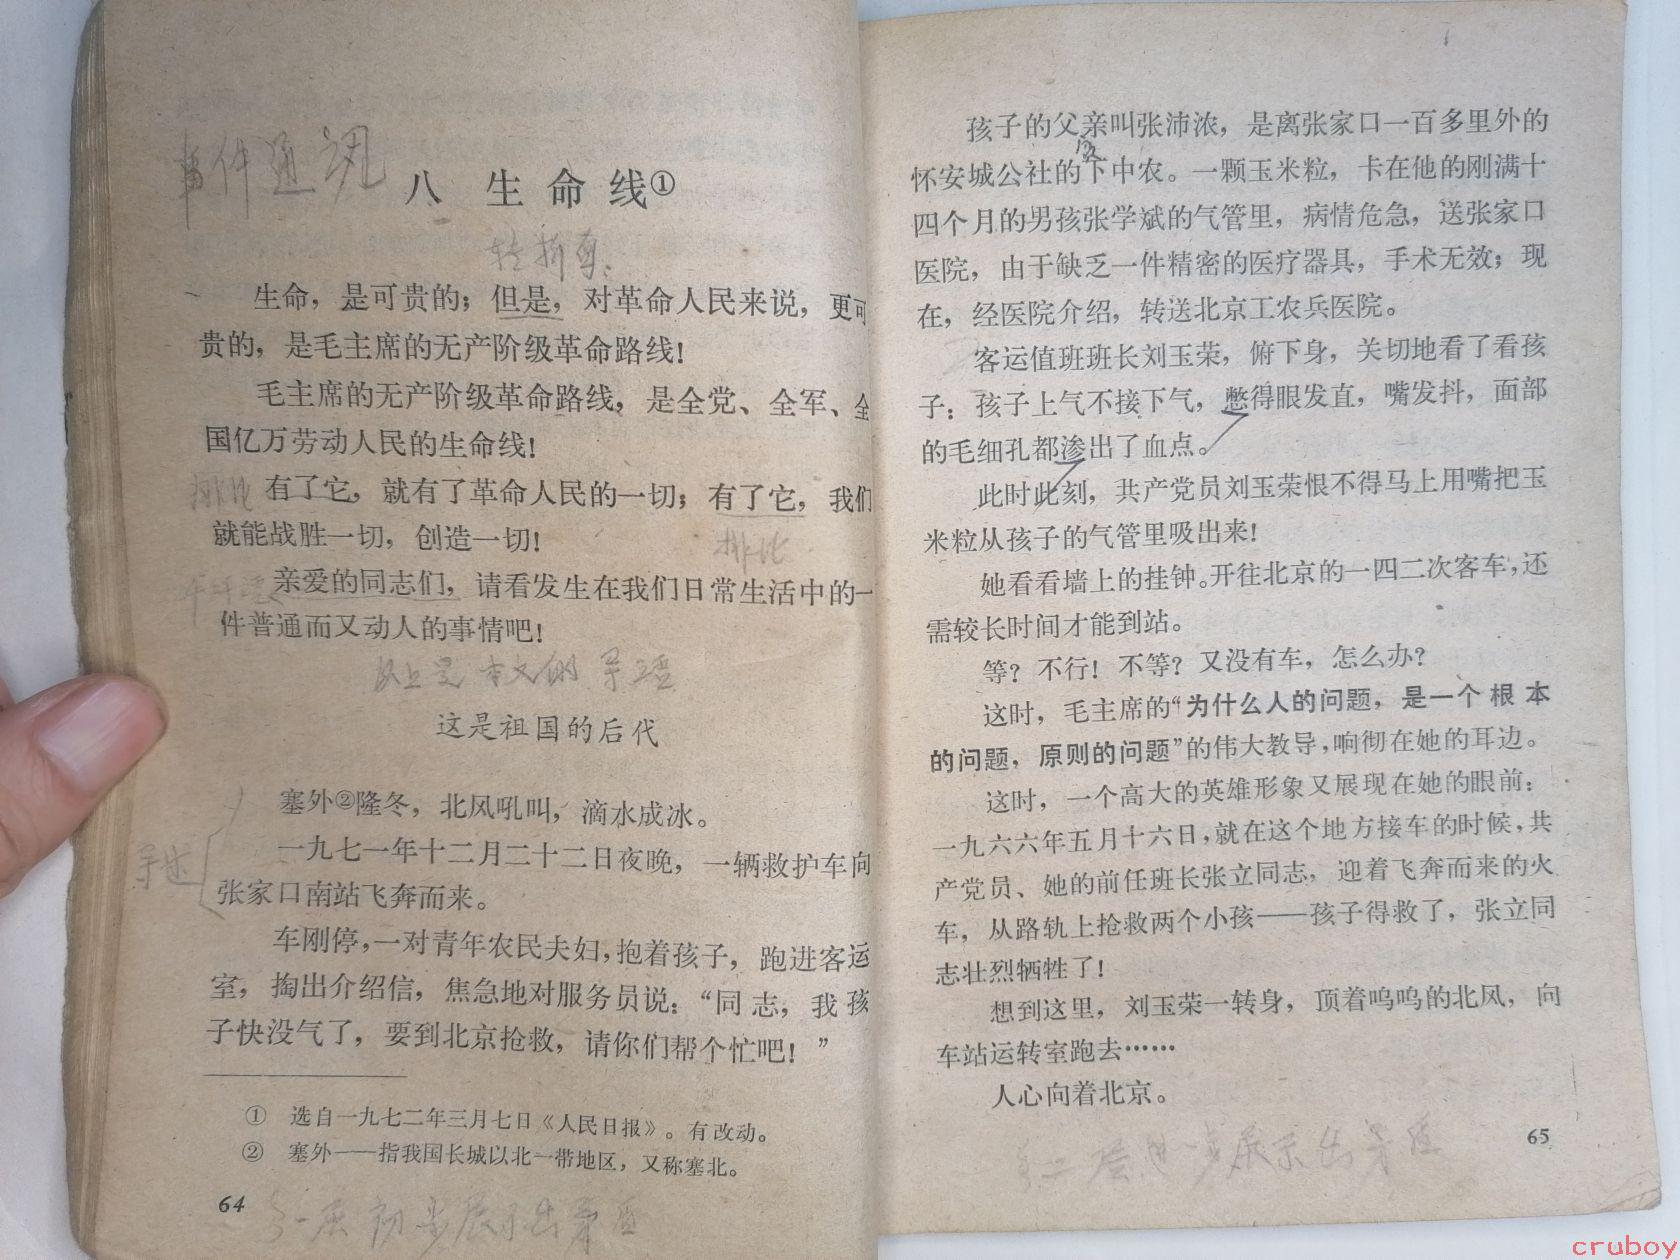 事件通讯
八 生命线①
转折句:
生命，是可贵的；但是，对革命人民来说，更可
贵的，是毛主席的无产阶级革命路线！
毛主席的无产阶级革命路线，是全党、全军、全
国亿万劳动人民的生命线！
排比
有了它，就有了革命人民的一切；有了它，我们
就能战胜一切，创造一切！
排比
亲爱的同志们，请看发生在我们日常生活中的一
件普通而又动人的事情吧！
以上是本文的导语
这是祖国的后代
塞外②隆冬，北风吼叫，滴水成冰。
一九七一年十二月二十二日夜晚，一辆救护车向
张家口南站飞奔而来。
车刚停，一对青年农民夫妇，抱着孩子，跑进客运
室，掏出介绍信，焦急地对服务员说：“同志，我孩
子快没气了，要到北京抢救，请你们帮个忙吧！”
① 选自一九七二年三月七日《人民日报》。有改动。
② 塞外——指我国长城以北一带地区，又称塞北。
64
一层初步展示出矛盾
孩子的父亲叫张沛浓，是离张家口一百多里外的
怀安城公社的下中农。一颗玉米粒，卡在他的刚满十
四个月的男孩张学斌的气管里，病情危急，送张家口
医院，由于缺乏一件精密的医疗器具，手术无效；现
在，经医院介绍，转送北京工农兵医院。
客运值班班长刘玉荣，俯下身，关切地看了看孩
子：孩子上气不接下气，憋得眼发直，嘴发抖，面部
的毛细孔都渗出了血点。
此时此刻，共产党员刘玉荣恨不得马上用嘴把玉
米粒从孩子的气管里吸出来！
她看看墙上的挂钟。开往北京的一四二次客车，还
需较长时间才能到站。
等？不行！不等？又没有车，怎么办？
这时，毛主席的“为什么人的问题，是一个根本
的问题，原则的问题”的伟大教导，响彻在她的耳边。
这时，一个高大的英雄形象又展现在她的眼前：
一九六六年五月十六日，就在这个地方接车的时候，共
产党员、她的前任班长张立同志，迎着飞奔而来的火
车，从路轨上抢救两个小孩——孩子得救了，张立同
志壮烈牺牲了！
想到这里，刘玉荣一转身，顶着呜呜的北风，向
车站运转室跑去……
人心向着北京。
65
二层进一步展示出矛盾
cruboy